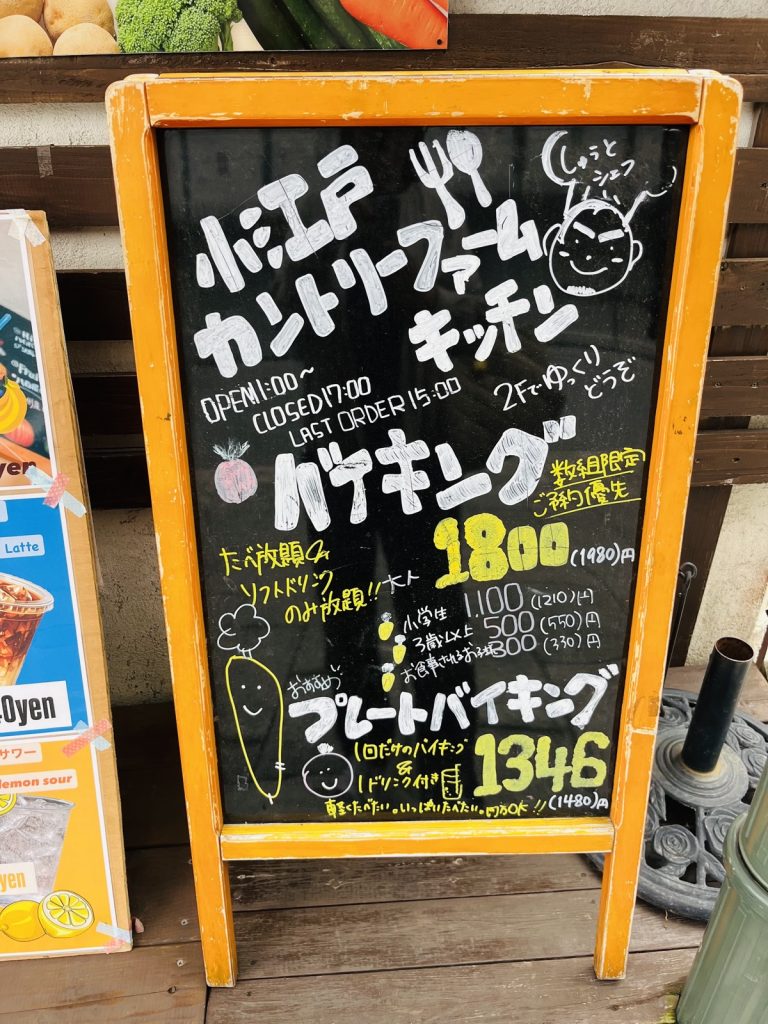 しゅうと
シェフ
小江戸
カントリーファーム
キッチン
OPEN11:00~
CLOSED17:00
LAST ORDER 15:00
2Fでゆっくり
どうぞ
バイキング
数組限定
ご予約優先
たべ放題&
ソフトドリンク
のみ放題!!
大人
1800(1980)円
小学生 1100 (1210)円
3歳以上 500 (550)円
お食事されるお子様 300 (330)円
おすすめ
プレートバイキング
1回だけのバイキング
&
1ドリンク付き
1346
(1480)円
軽くたべたい。いっぱいたべたい。両方OK!!
yen
Latte
0yen
サワー
lemon sour
yen